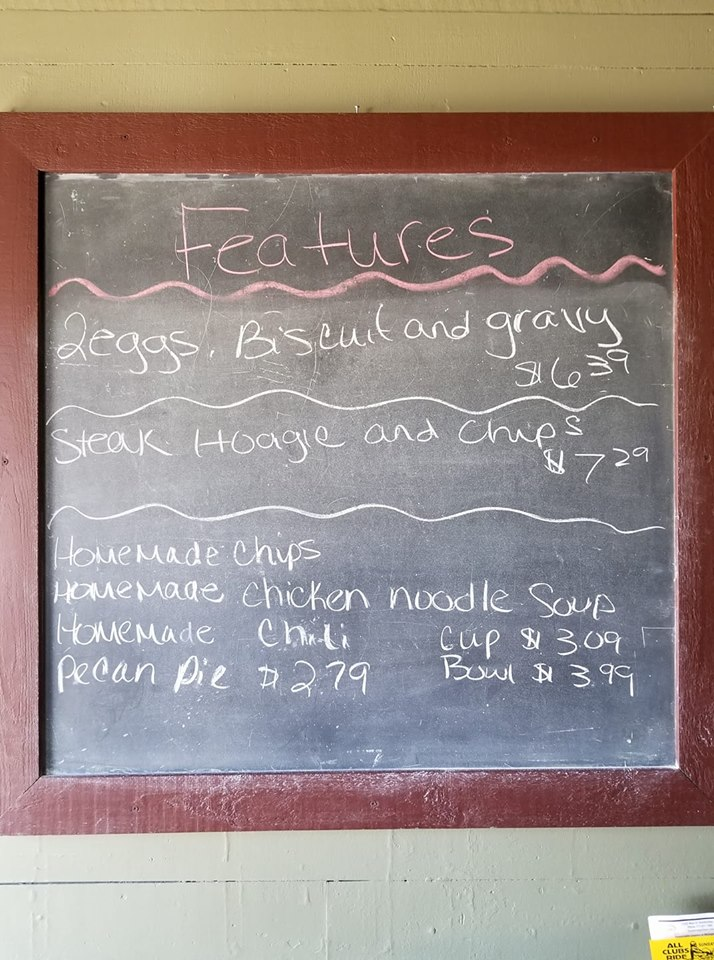 Features
2eggs. Biscuit and gravy
$6 39
Steak Hoagie and chips
$7 29
Homemade chips
Homemade chicken noodle Soup
Homemade Chili Cup $3.09
Pecan Pie $2.79 Bowl $3.99
ALL
CLUBS
RIDE